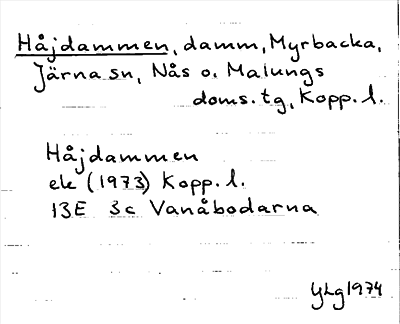 Håjdammen, damm, Myrbacka,
Järna sn, Nås o. Malungs
doms. tg, Kopp. l.
Håjdammen
ek (1973) Kopp. l.
13E 3c Vanåbodarna
YLg 1974